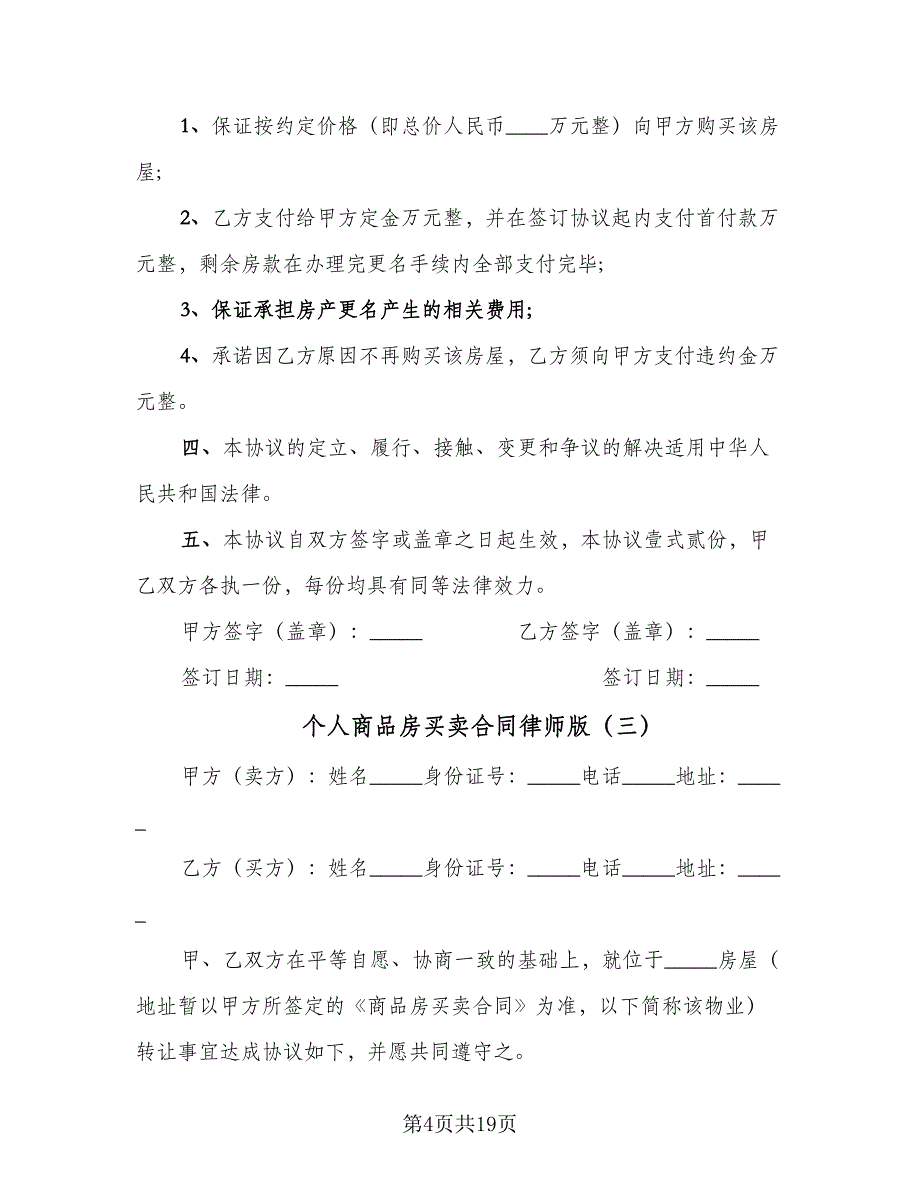 1、保证按约定价格（即总价人民币____万元整）向甲方购买该房
屋;
2、乙方支付给甲方定金万元整，并在签订协议起内支付首付款万
元整，剩余房款在办理完更名手续内全部支付完毕;
3、保证承担房产更名产生的相关费用;
4、承诺因乙方原因不再购买该房屋，乙方须向甲方支付违约金万
元整。
四、本协议的定立、履行、接触、变更和争议的解决适用中华人
民共和国法律。
五、本协议自双方签字或盖章之日起生效，本协议壹式贰份，甲
乙双方各执一份，每份均具有同等法律效力。
甲方签字（盖章）：_____ 乙方签字（盖章）：_____
签订日期：_____ 签订日期：_____
个人商品房买卖合同律师版（三）
甲方（卖方）：姓名_____身份证号：_____电话_____地址：____
_
乙方（买方）：姓名_____身份证号：_____电话_____地址：____
_
甲、乙双方在平等自愿、协商一致的基础上，就位于_____房屋（
地址暂以甲方所签定的《商品房买卖合同》为准，以下简称该物业）
转让事宜达成协议如下，并愿共同遵守之。
第4页共19页